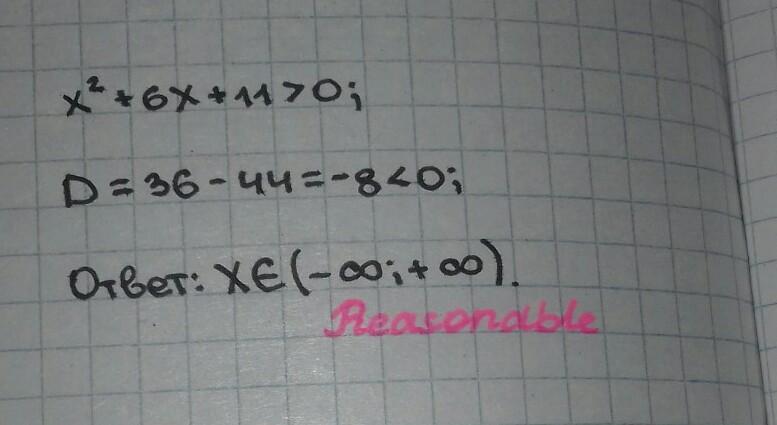 x² + 6x + 11 > 0;
D = 36 - 44 = -8 < 0;
Ответ: x∈(-∞; +∞).
Reasonable